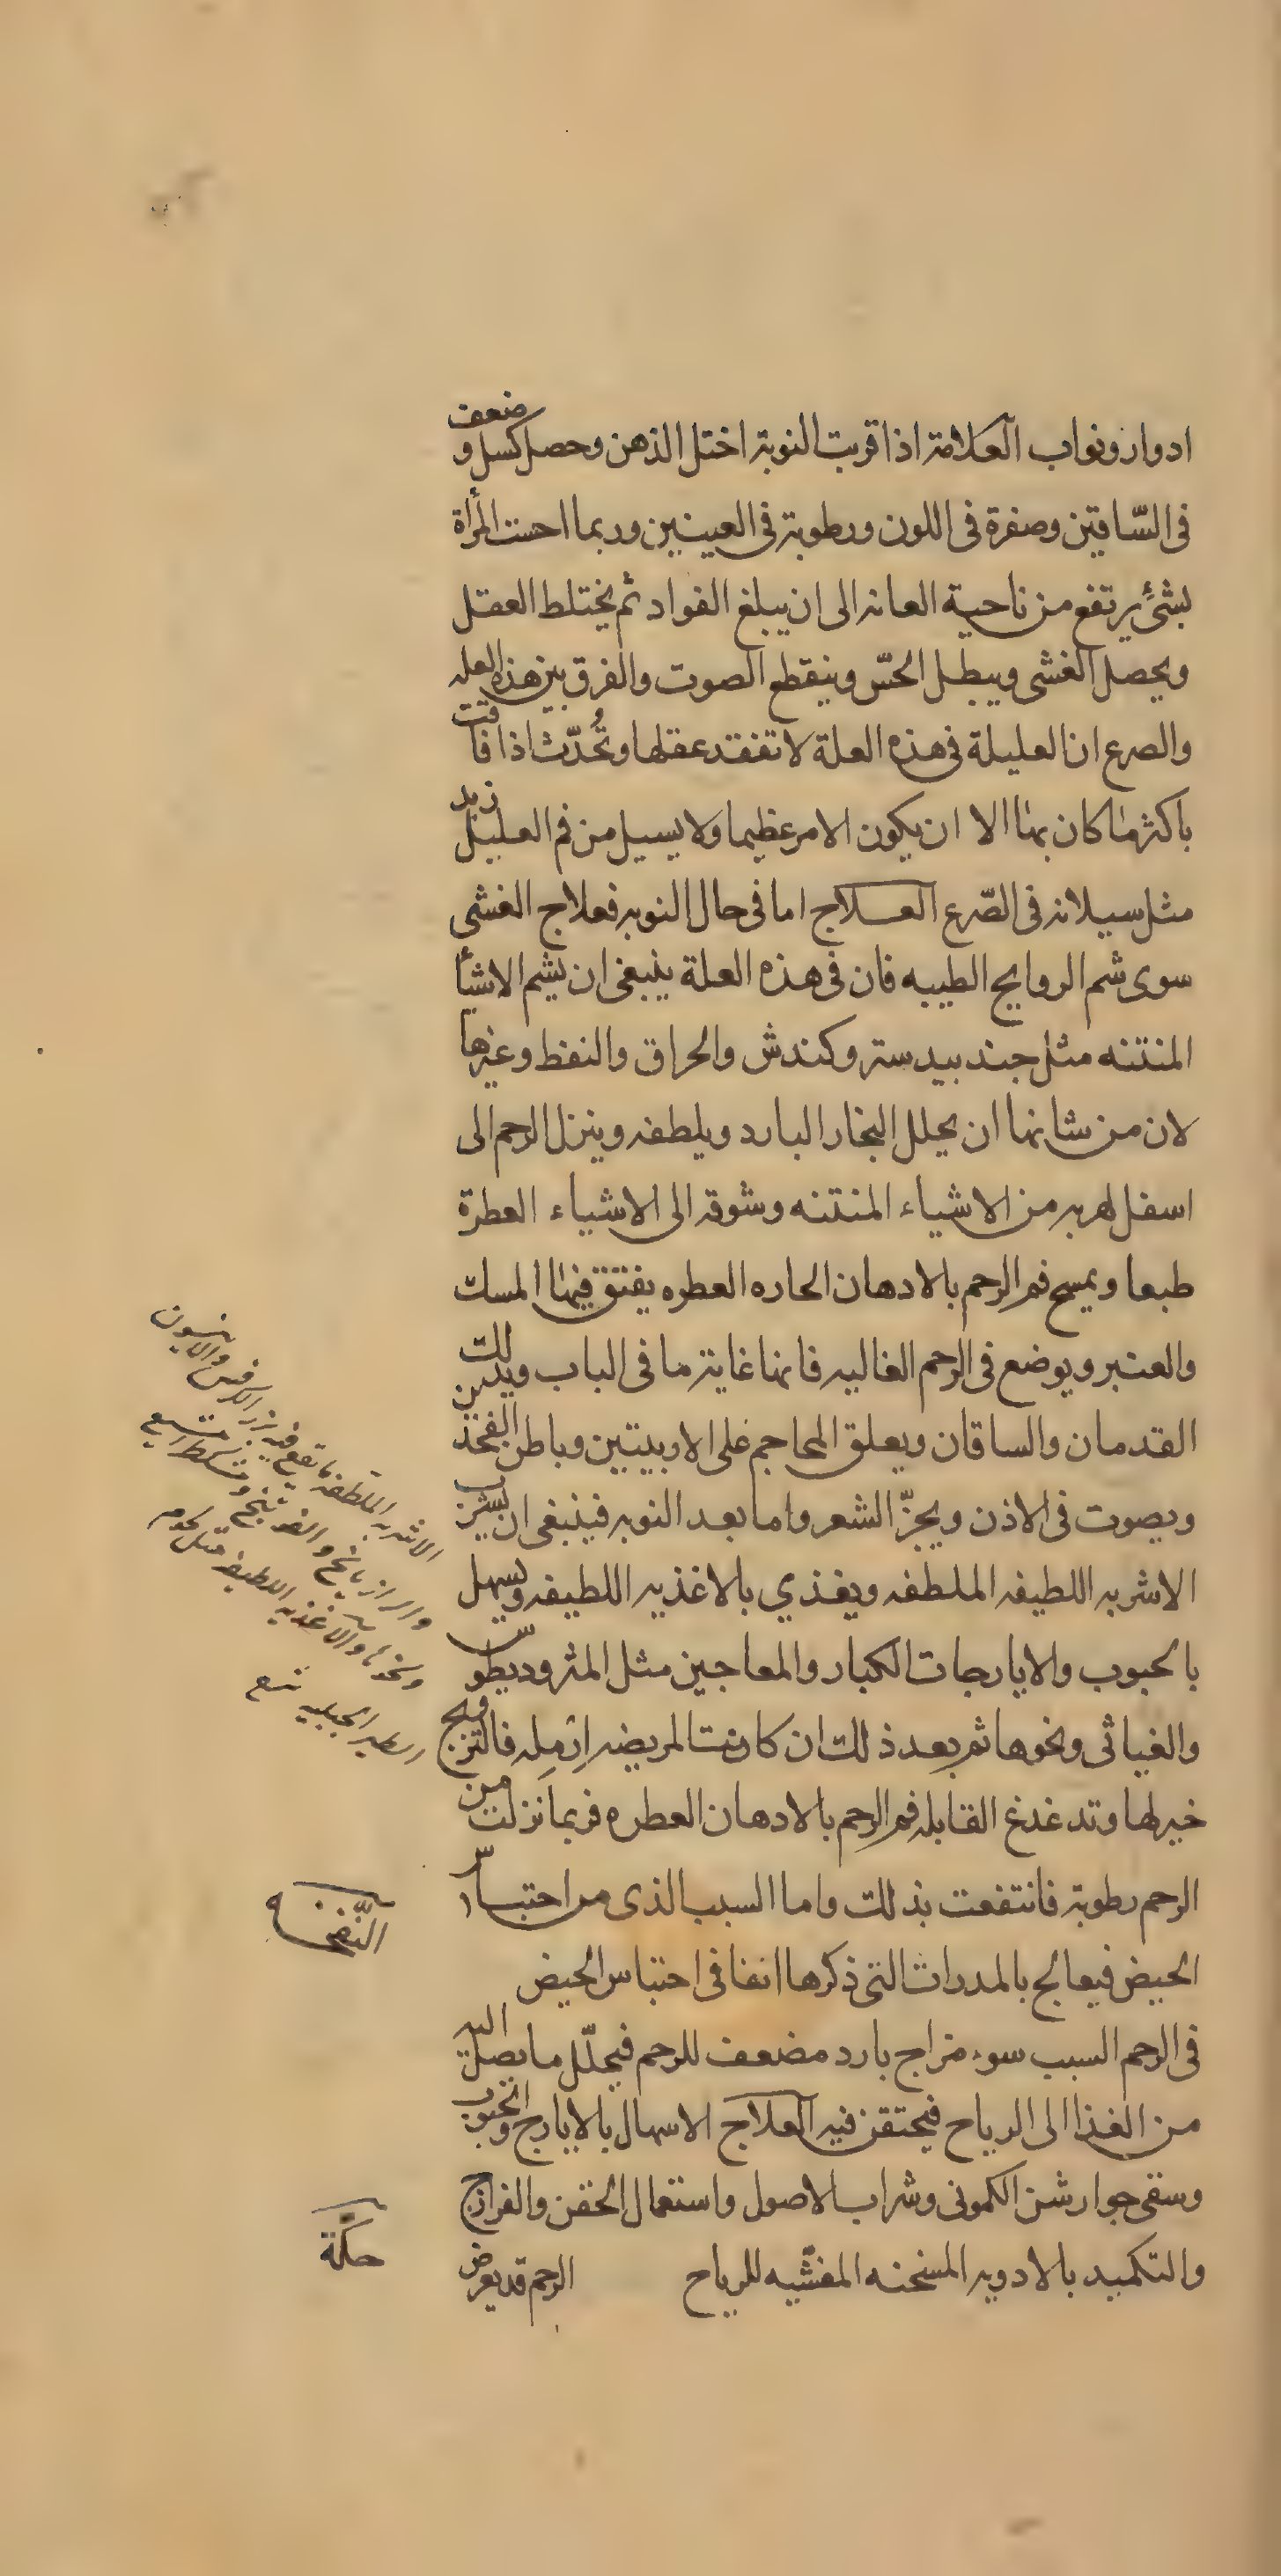 ادوار ونواب العلامة اذا قربت النوبة اختل الذهن وحصل كسل وضعف
فى السّاقين وصفرة فى اللون ورطوبة فى العينين وربما احست المرأة
بشئ يرتفع من ناحية العانه الى ان يبلغ الفواد ثم يختلط العقل
ويحصل الغشى ويبطل الحسّ وينقطع الصوت والفرق بين هذه العله
والصرع ان العليلة فى هذه العلة لا تفقد عقلها وتُحدّث اذا فاقت
باكثر ما كان بها الا ان يكون الامر عظيما ولا يسيل من فم العليل زبد
مثل سيلانه فى الصّرع العلاج اما فى حال النوبه فعلاج الغشى
سوى شم الروايح الطيبه فان فى هذه العلة ينبغى ان يشم الاشيأ
المنتنه مثل جند بيدستر وكندش والحراق والنفط وغيرها
لان من شانها ان يحلل البخار البارد ويلطفه وينزل الرحم الى
اسفل لهربه من الاشياء المنتنه وشوقه الى الاشياء العطرة
طبعا ويمسح فم الرحم بالادهان الحاره العطره يفتق فيها المسك
والعنبر ويوضع فى الرحم الغاليه فانها غاية ما فى الباب ويدلك
القدمان والساقان ويعلق المحاجم على الاربيتين وباطن الفخذين
ويصوت فى الاذن ويجزّ الشعر واما بعد النوبه فينبغى ان يشرب
الاشربه اللطيفه الملطفه ويغذي بالاغذيه اللطيفه ويسهل
بالحبوب والايارجات الكبار والمعاجين مثل المثروديطوس
والغياثى ونحوها ثم بعد ذلك ان كانت المريضه ارمله فالتزويج
خير لها وتدغدغ القابله فم الرحم بالادهان العطره فربما نزلت من
الرحم رطوبة فانتفعت بذلك واما السبب الذى من احتباس
الحيض فيعالج بالمدرات التى ذكرها انفا فى احتباس الحيض
النّفخه
فى الرحم السبب سوء مزاج بارد مضعف للرحم فيحلّل ما يصل اليه
من الغذا الى الرياح فيحتقن فيه العلاج الاسهال بالايارج والحبوب
وسقى جوارشن الكمونى وشراب الاصول واستعمال الحقن والفرازج
والتكميد بالادويه المسخنه المفشّيه للرياح حكّة الرحم قد يعرض
الاشربه الملطفه ما يقع فيه بزر الكرفس والانيسون
والرازيانج والفوتنج ومشكطرامشيع
ونحوها والاغذيه اللطيفه مثل لحوم
الطير الجبليه